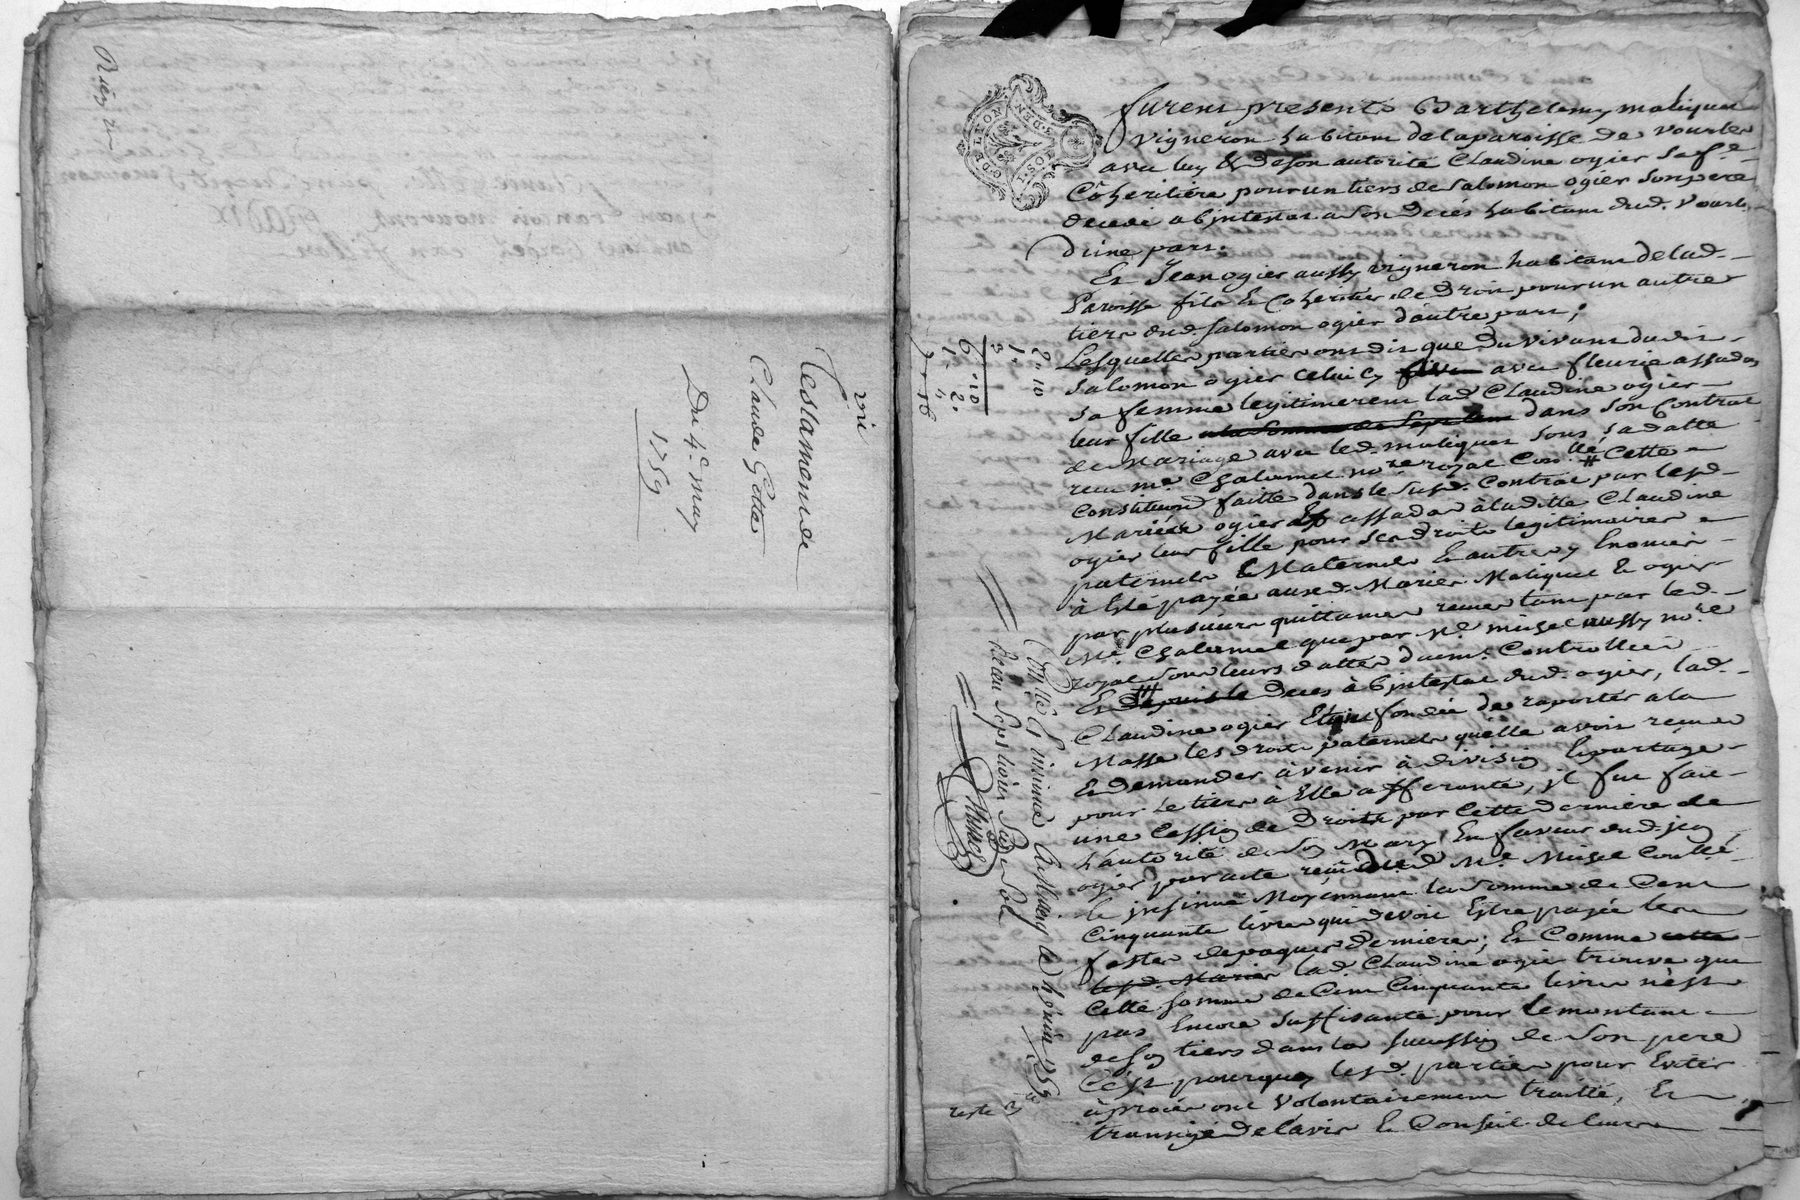 vie
Testament de
Claude Gette
Du 4e may
1759
GDE LYON
furent presents Barthelemy matiquet
vigneron habitant de la paroisse de vourles
avec luy & de son autorité Claudine ogier sa fe
Coheritiere pour un tiers de Salomon ogier son pere
decedé abintestat a son decés habitant dud. vourles
d'une part.
Et Jean ogier aussy vigneron habitant de lad.
Paroisse fils Et Coheritier de droit pour un autre
tiers dud. Salomon ogier d'autre part;
Lesquelles parties ont dit que du vivant dudit
Salomon ogier celuicy avec fleurie assada
sa femme legitimerent lad. Claudine ogier
leur fille dans son Contrat
de Mariage avec led. matiquet sous sa datte
receu me Chalumel nore royal Conllé # Cette
Constitution faitte dans le susd. Contrat par lesd.
Mariés ogier Et assada à laditte Claudine
ogier leur fille pour ses droits legitimaires
paternels & Maternels Et autres y Enoncés
à Esté payée auxd. Mariés Matiquet & ogier
par plusieurs quittances receues tant par led.
Me. Chalumel que par Me. michel aussy nore
royal sous leurs dattes duëmt. Controllées
Et depuis le deces abintestat dud. ogier, lad.
Claudine ogier Etant fondée de raporter a la
Masse les droits paternels quelle avoit receus
Et demander à venir à division & partage
pour le tiers à Elle afferante, il fut fait
une Cession de droits par Cette derniere de
l'autorité de son Mary En faveur dud. jean
ogier par acte receu led. Me. Michel Conllé
& insinué Moyennant la somme de Cent
Cinquante livres qui devoit Estre payée les
festes de paques dernieres; Et Comme cette
lesd. Mariés lad. Claudine ogier trouve que
Cette somme de Cent Cinquante livres n'est
pas Encore suffisante pour le montant
de son tiers dans la succession de son pere
C'est pourquoy lesd. parties pour Eviter
à procés ont volontairement traitté, Et
transigé de l'avis & Conseil de leurs
2 " 10
1 "
3
6 " 10
1 " 4
7 " 16
Conllé Et insinué
Receu sept livres